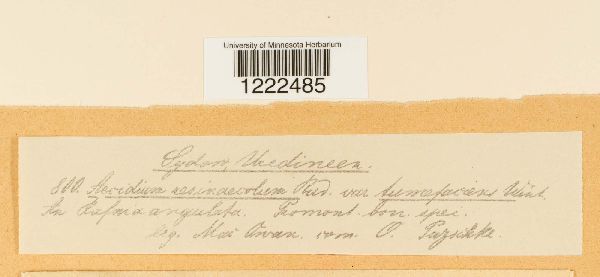 University of Minnesota Herbarium
1222485
Sydow, Uredineen.
800. Aecidium resinaecolum Rud. var. tumefaciens Wint.
In Rafnia angulata. Tromont. bon. spei.
leg. Mac Owan. com. O. Pazschke.